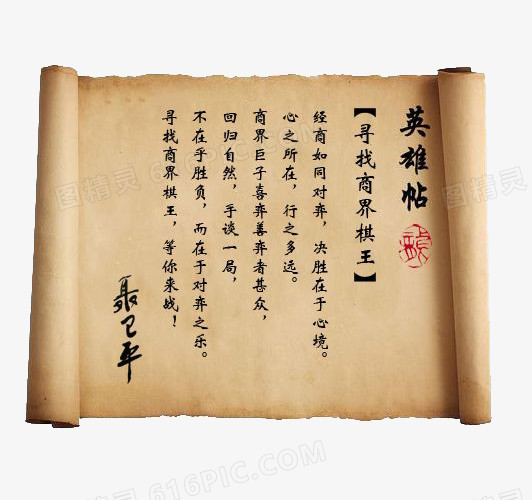 英雄帖
【寻找商界棋王】
经商如同对弈，决胜在于心境。
心之所在，行之多远。
商界巨子喜弈善弈者甚众，
回归自然，手谈一局，
不在乎胜负，而在于对弈之乐。
寻找商界棋王，等你来战！
聂卫平
图精灵
616PIC.COM